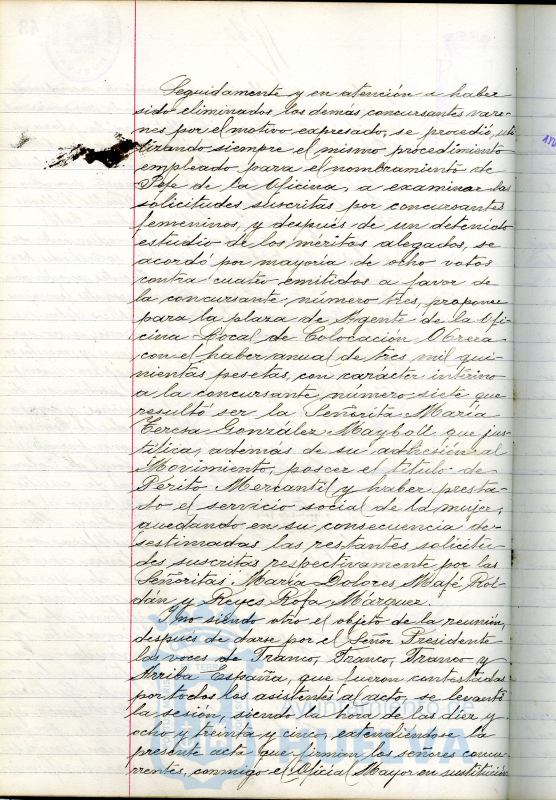 Seguidamente y en atención a haber
sido eliminados los demás concursantes varo-
nes por el motivo expresado, se procedió, uti-
lizando siempre el mismo procedimiento
empleado para el nombramiento de
Jefe de la Oficina, a examinar las
solicitudes suscritas por concursantes
femeninos, y después de un detenido
estudio de los méritos alegados, se
acordó por mayoría de ocho votos
contra cuatro emitidos a favor de
la concursante número tres, proponer
para la plaza de Agente de la Ofi-
cina Local de Colocación Obrera
con el haber anual de tres mil qui-
nientas pesetas, con carácter interino
a la concursante número siete que
resultó ser la Señorita María
Teresa González Mayboll que jus-
tifica, además de su adhesión al
Movimiento, poseer el título de
Perito Mercantil y haber presta-
do el servicio social de la mujer,
quedando en su consecuencia de-
sestimadas las restantes solicitu-
des suscritas respectivamente por las
Señoritas: María Dolores Mafé Rol-
dán y Reyes Rofa Márquez.
Y no siendo otro el objeto de la reunión,
después de darse por el Señor Presidente
las voces de Franco, Franco, Franco y
Arriba España, que fueron contestadas
por todos los asistentes al acto, se levantó
la sesión, siendo la hora de las diez y
ocho y treinta y cinco, extendiéndose la
presente acta que firman los señores concu-
rrentes, conmigo el Oficial Mayor en sustitución
Ayuntamiento de